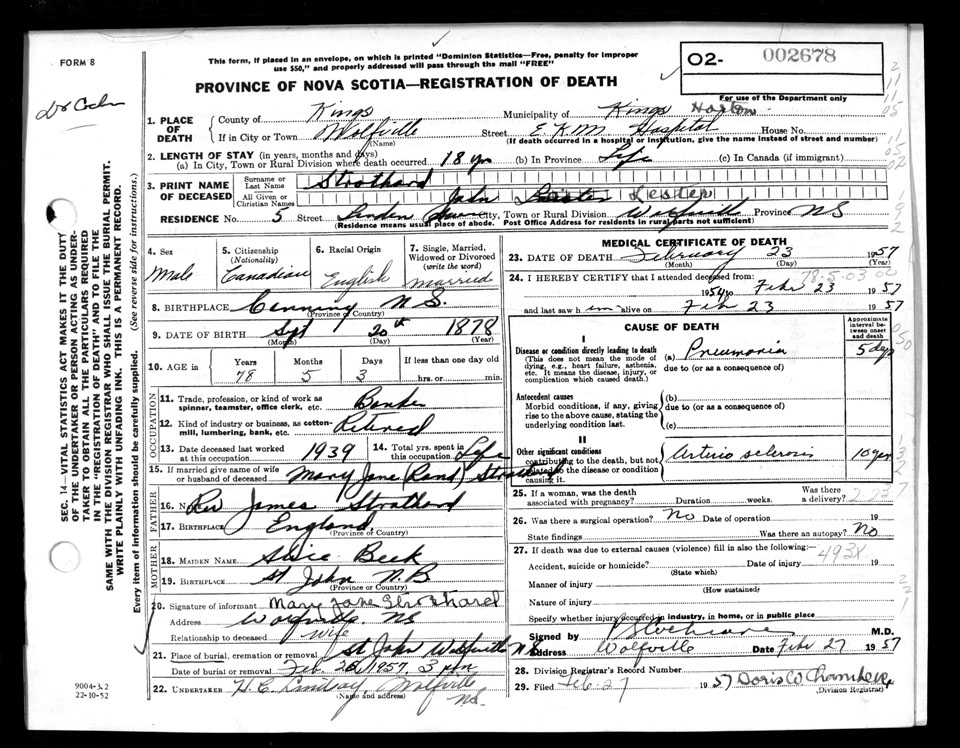 FORM 8
Dr Coch
This form, if placed in an envelope, on which is printed "Dominion Statistics—Free, penalty for improper
use $50," and properly addressed will pass through the mail "FREE"
PROVINCE OF NOVA SCOTIA—REGISTRATION OF DEATH
O2- 002678
For use of the Department only
SEC. 14—VITAL STATISTICS ACT MAKES IT THE DUTY
OF THE UNDERTAKER OR PERSON ACTING AS UNDER-
TAKER TO OBTAIN ALL THE PARTICULARS REQUIRED
IN THE "REGISTRATION OF DEATH" AND TO FILE THE
SAME WITH THE DIVISION REGISTRAR WHO SHALL ISSUE THE BURIAL PERMIT.
WRITE PLAINLY WITH UNFADING INK. THIS IS A PERMANENT RECORD.
Every item of information should be carefully supplied. (See reverse side for instructions.)
1. PLACE OF DEATH County of Kings Municipality of Kings Horton
If in City or Town Wolfville (Name) Street E K M Hospital House No.
(If death occurred in a hospital or institution, give the name instead of street and number)
2. LENGTH OF STAY (in years, months and days)
(a) In City, Town or Rural Division where death occurred 18 yrs (b) In Province Life (c) In Canada (if immigrant)
3. PRINT NAME OF DECEASED Surname or Last Name Strothard
All Given or Christian Names John Lester Lester
RESIDENCE No. 5 Street Linden City, Town or Rural Division Wolfville Province NS
(Residence means usual place of abode. Post Office Address for residents in rural parts not sufficient)
4. Sex Male
5. Citizenship (Nationality) Canadian
6. Racial Origin English
7. Single, Married, Widowed or Divorced (write the word) Married
8. BIRTHPLACE Canning N.S. (Province or Country)
9. DATE OF BIRTH Sept (Month) 20th (Day) 1878 (Year)
10. AGE in Years 78 Months 5 Days 3 If less than one day old hrs. or min.
OCCUPATION
11. Trade, profession, or kind of work as spinner, teamster, office clerk, etc. Banker
12. Kind of industry or business, as cotton-mill, lumbering, bank, etc. Retired
13. Date deceased last worked at this occupation 1939
14. Total yrs. spent in this occupation Life
15. If married give name of wife or husband of deceased Mary Jane Rand Strothard
FATHER
16. Name Rev James Strothard
17. Birthplace England (Province or Country)
MOTHER
18. MAIDEN NAME Susie Beek
19. BIRTHPLACE St John N.B (Province or Country)
20. Signature of informant Mary Jane Strothard
Address Wolfville NS
Relationship to deceased Wife
21. Place of burial, cremation or removal St John Wolfville N.S
Date of burial or removal Feb. 26 1957, 3 pm
22. UNDERTAKER H. C. Lindsay, Wolfville NS. (Name and address)
9004-3.2
22-10-52
MEDICAL CERTIFICATE OF DEATH
23. DATE OF DEATH February (Month) 23 (Day) 1957 (Year)
24. I HEREBY CERTIFY that I attended deceased from:
78-5-03 00
1954 to Feb 23 1957
and last saw h im alive on Feb 23 1957
CAUSE OF DEATH
Approximate interval between onset and death
I
Disease or condition directly leading to death
(This does not mean the mode of dying, e.g., heart failure, asthenia, etc. It means the disease, injury, or complication which caused death.)
(a) Pneumonia 5 days
due to (or as a consequence of)
Antecedent causes
Morbid conditions, if any, giving rise to the above cause, stating the underlying condition last.
(b)
due to (or as a consequence of)
(c)
II
Other significant conditions contributing to the death, but not related to the disease or condition causing it.
Arterio sclerosis 10 yrs
25. If a woman, was the death associated with pregnancy? Duration weeks. Was there a delivery?
26. Was there a surgical operation? No Date of operation 19
State findings Was there an autopsy? No
27. If death was due to external causes (violence) fill in also the following:—
493X
Accident, suicide or homicide? (State which) Date of injury 19
Manner of injury (How sustained)
Nature of injury
Specify whether injury occurred in industry, in home, or in public place
Signed by Cochrane M.D.
Address Wolfville Date Feb 27 1957
28. Division Registrar's Record Number
29. Filed Feb-27 1957 Doris W Chambers (Division Registrar)